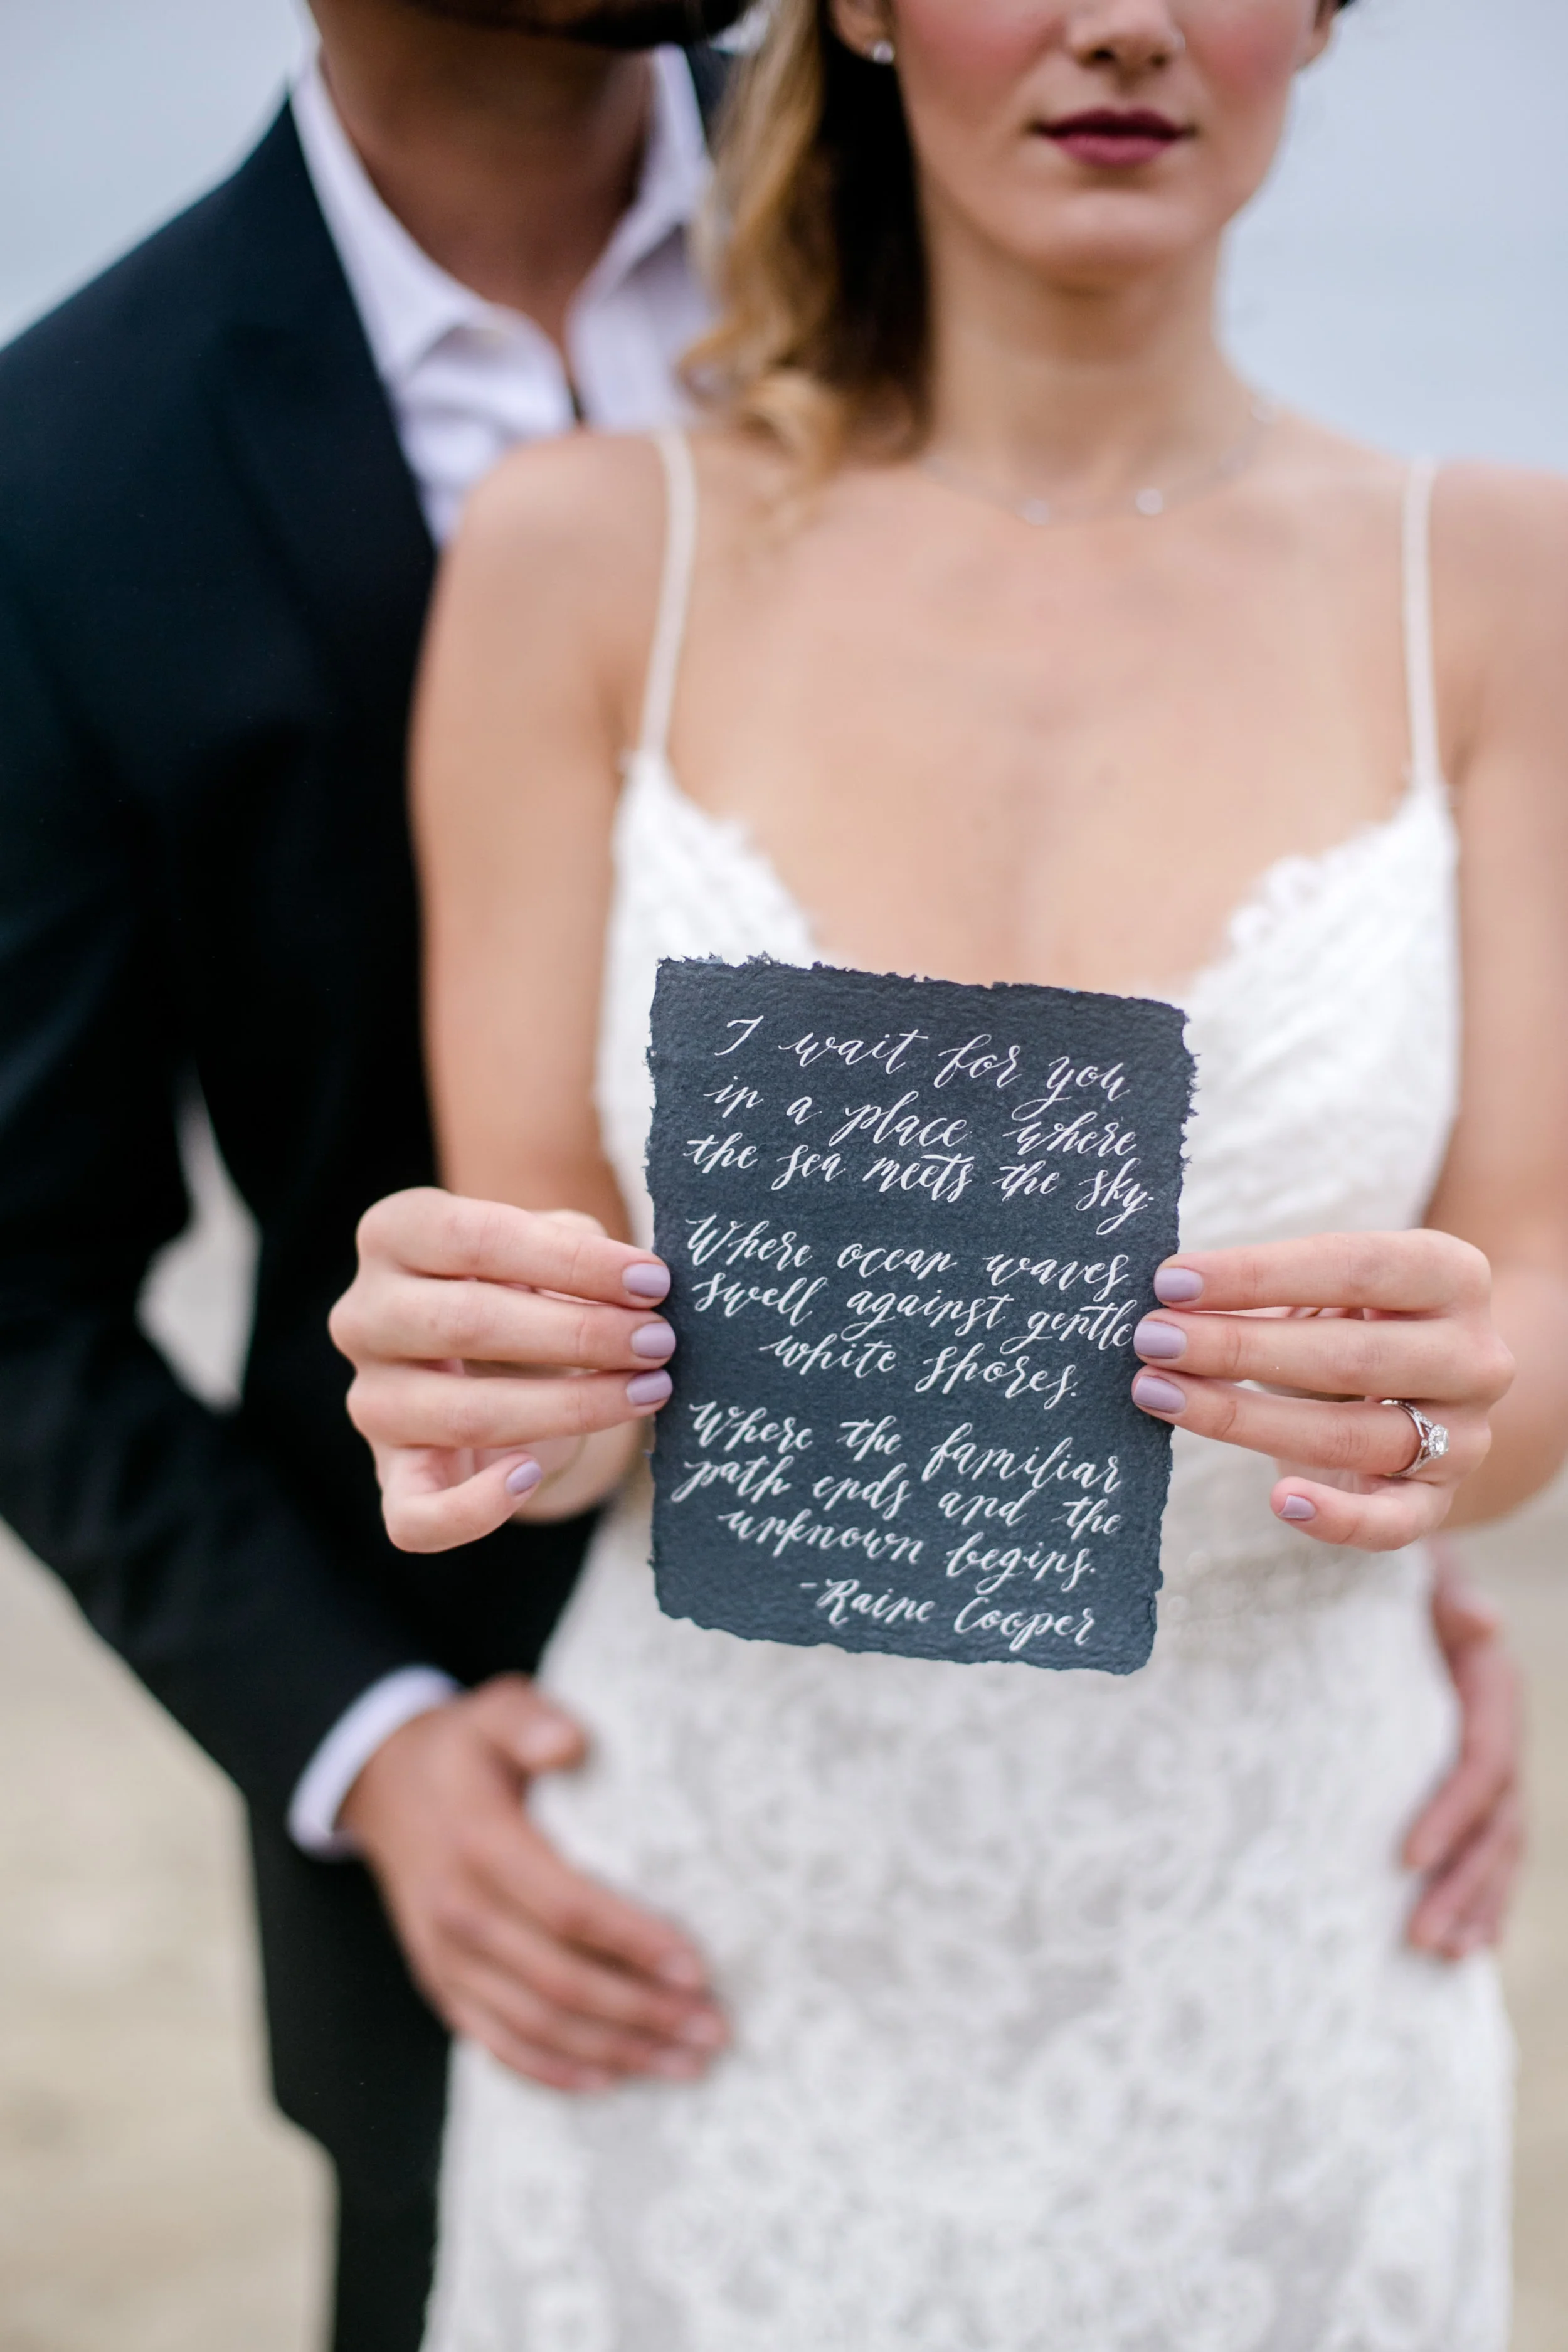 I wait for you
in a place where
the sea meets the sky.
Where ocean waves
swell against gentle
white shores.
Where the familiar
path ends and the
unknown begins.
-Raine Cooper